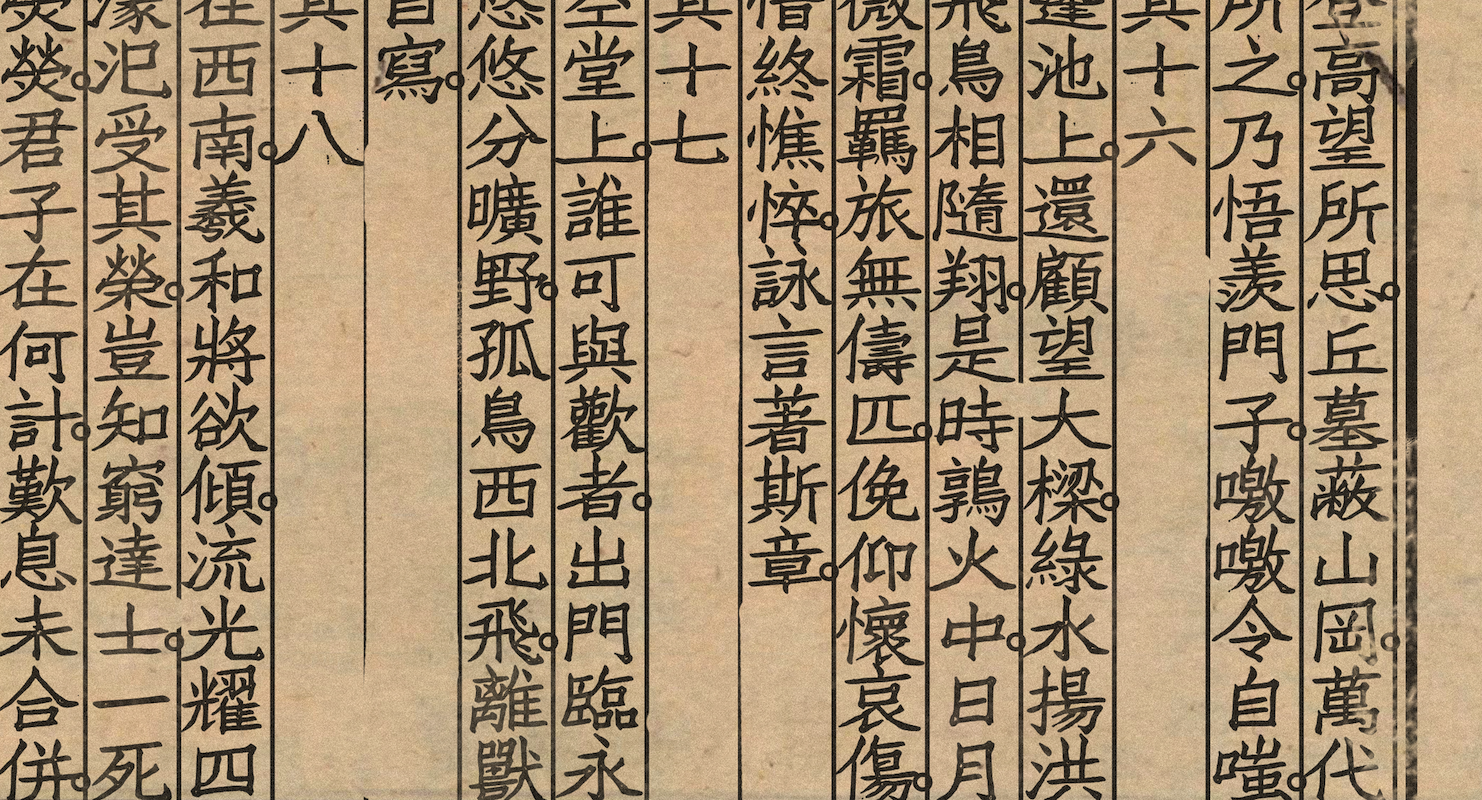 登高望所思。丘墓蔽山岡。萬代
所之。乃悟羨門子。噭噭令自嗤。
其十六
蓬池上。還顧望大樑。綠水揚洪
飛鳥相隨翔。是時鶉火中。日月
微霜。羈旅無儔匹。俛仰懷哀傷。
惜終憔悴。詠言著斯章。
其十七
空堂上。誰可與歡者。出門臨永
悠悠分曠野。孤鳥西北飛。離獸
自寫。
其十八
在西南。羲和將欲傾。流光耀四
濛汜受其榮。豈知窮達士。一死
熒熒。君子在何計。歎息未合併。